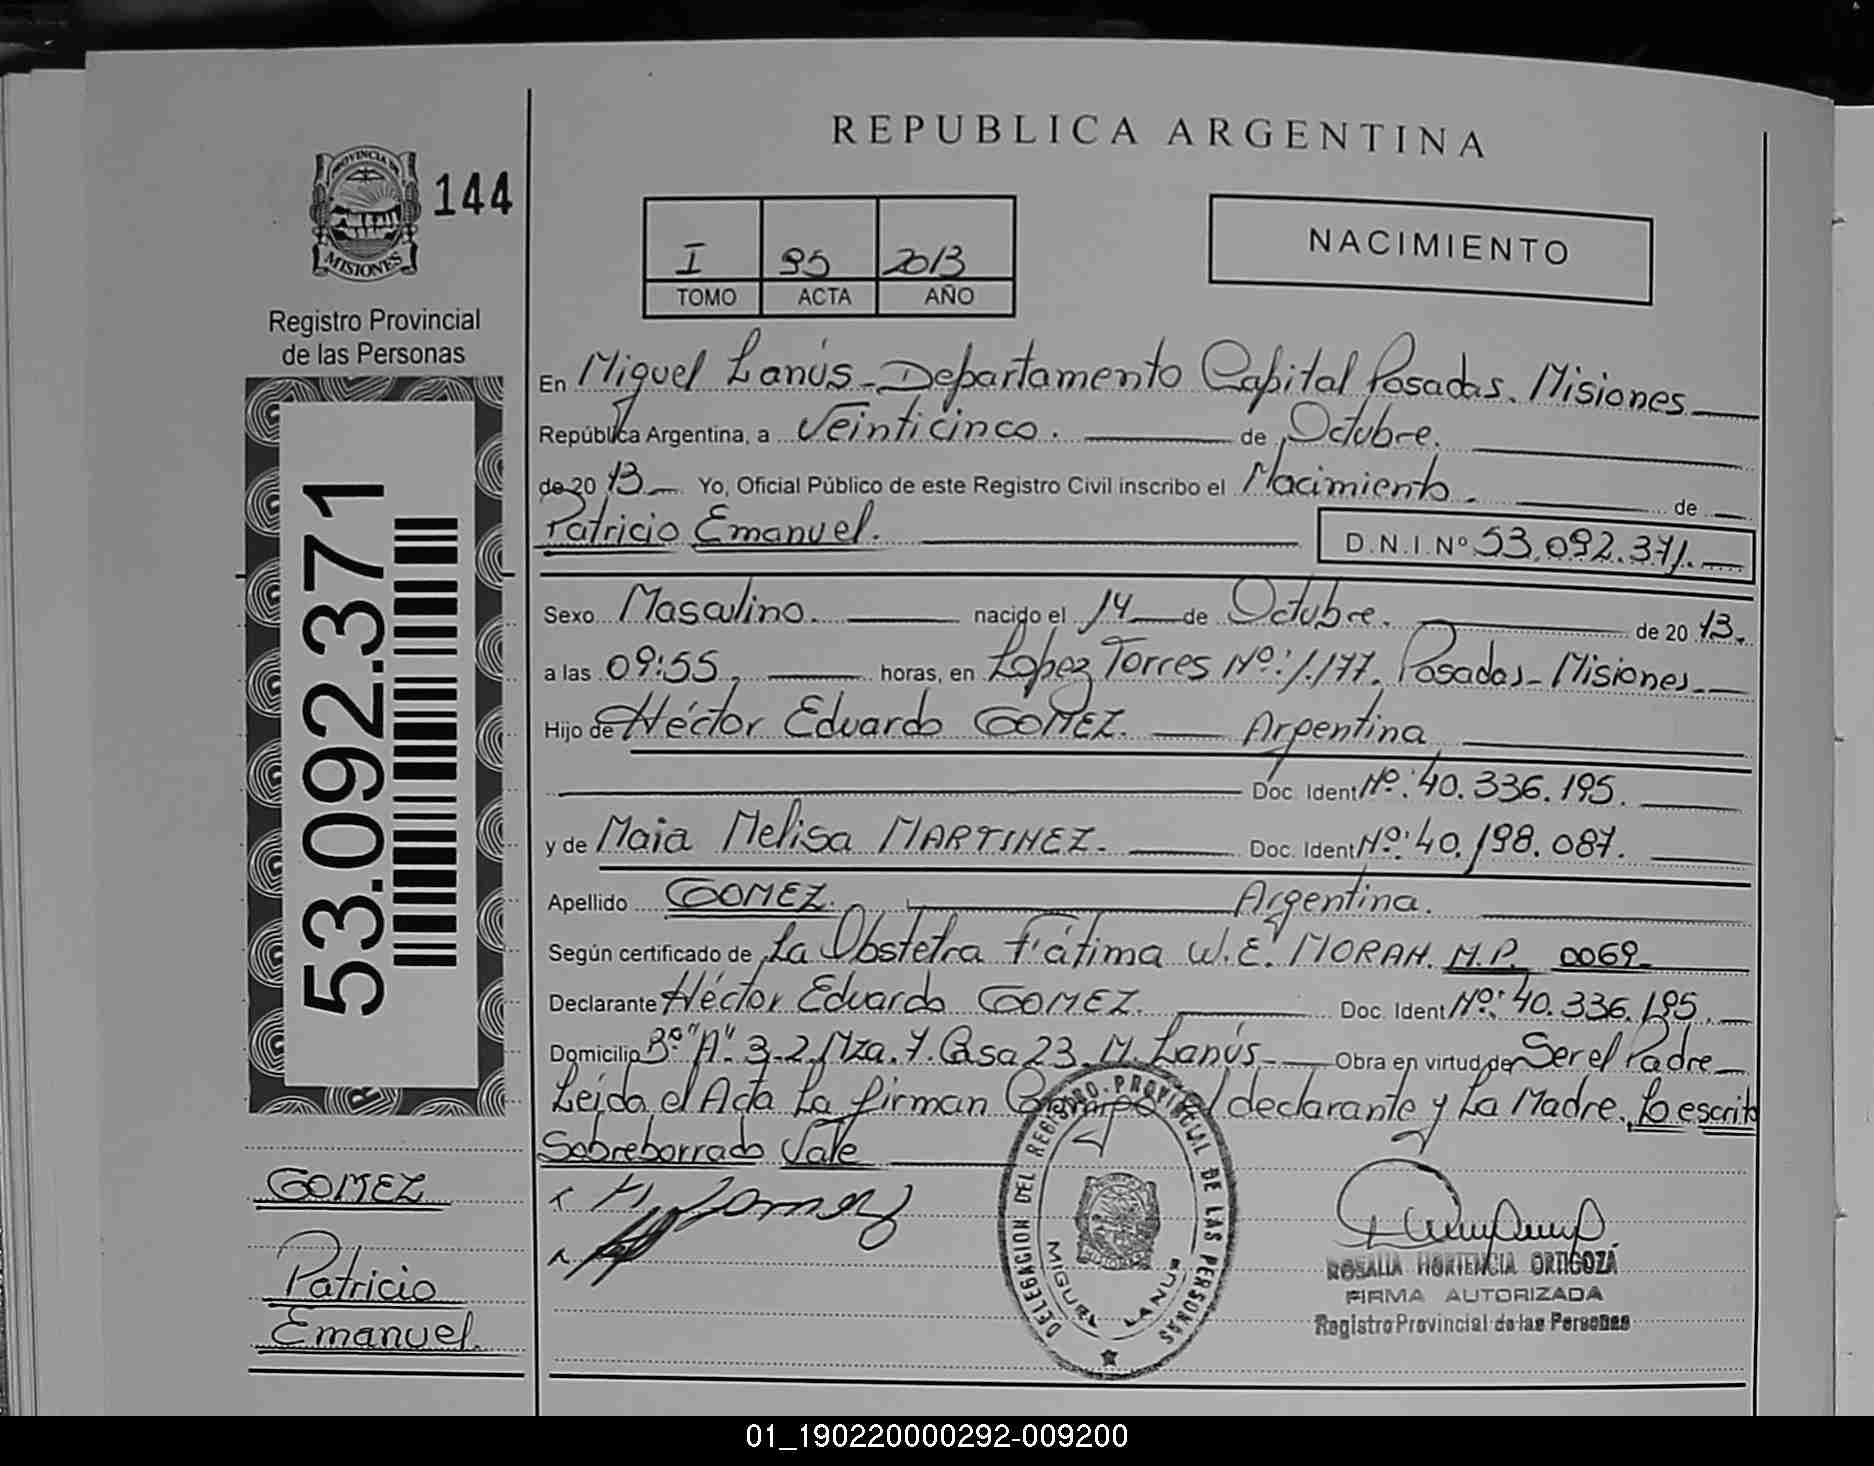 REPUBLICA ARGENTINA
PROVINCIA DE
MISIONES
144
I 95 2013
TOMO ACTA AÑO
NACIMIENTO
Registro Provincial
de las Personas
53.092.371
En Miguel Lanús - Departamento Capital Posadas. Misiones
República Argentina, a Veinticinco. de Octubre.
de 20 13 Yo, Oficial Público de este Registro Civil inscribo el Nacimiento. de
Patricio Emanuel. D.N.I.Nº 53.092.371.
Sexo Masculino. nacido el 14 de Octubre. de 20 13.
a las 09:55, horas, en Lopez Torres Nº: 1.177. Posadas - Misiones.
Hijo de Héctor Eduardo GOMEZ. Argentina
Doc. Ident Nº: 40.336.195.
y de Maia Melisa MARTINEZ. Doc. Ident Nº: 40.198.087.
Apellido GOMEZ. Argentina.
Según certificado de La Obstetra Fátima W.E. MORAN. M.P. 0069
Declarante Héctor Eduardo GOMEZ. Doc. Ident Nº: 40.336.195.
Domicilio Bº "A" 3-2. Mza. 7. Casa 23. M. Lanús - Obra en virtud de Ser el Padre
Leída el Acta La firman Conmigo el declarante y La Madre. Lo escrito
Sobreborrado Vale
GOMEZ
Patricio
Emanuel.
H. Gomez
DELEGACION DEL REGISTRO PROVINCIAL DE LAS PERSONAS
MIGUEL LANUS
ROSALIA HORTENCIA ORTIGOZA
FIRMA AUTORIZADA
Registro Provincial de las Personas
01_190220000292-009200